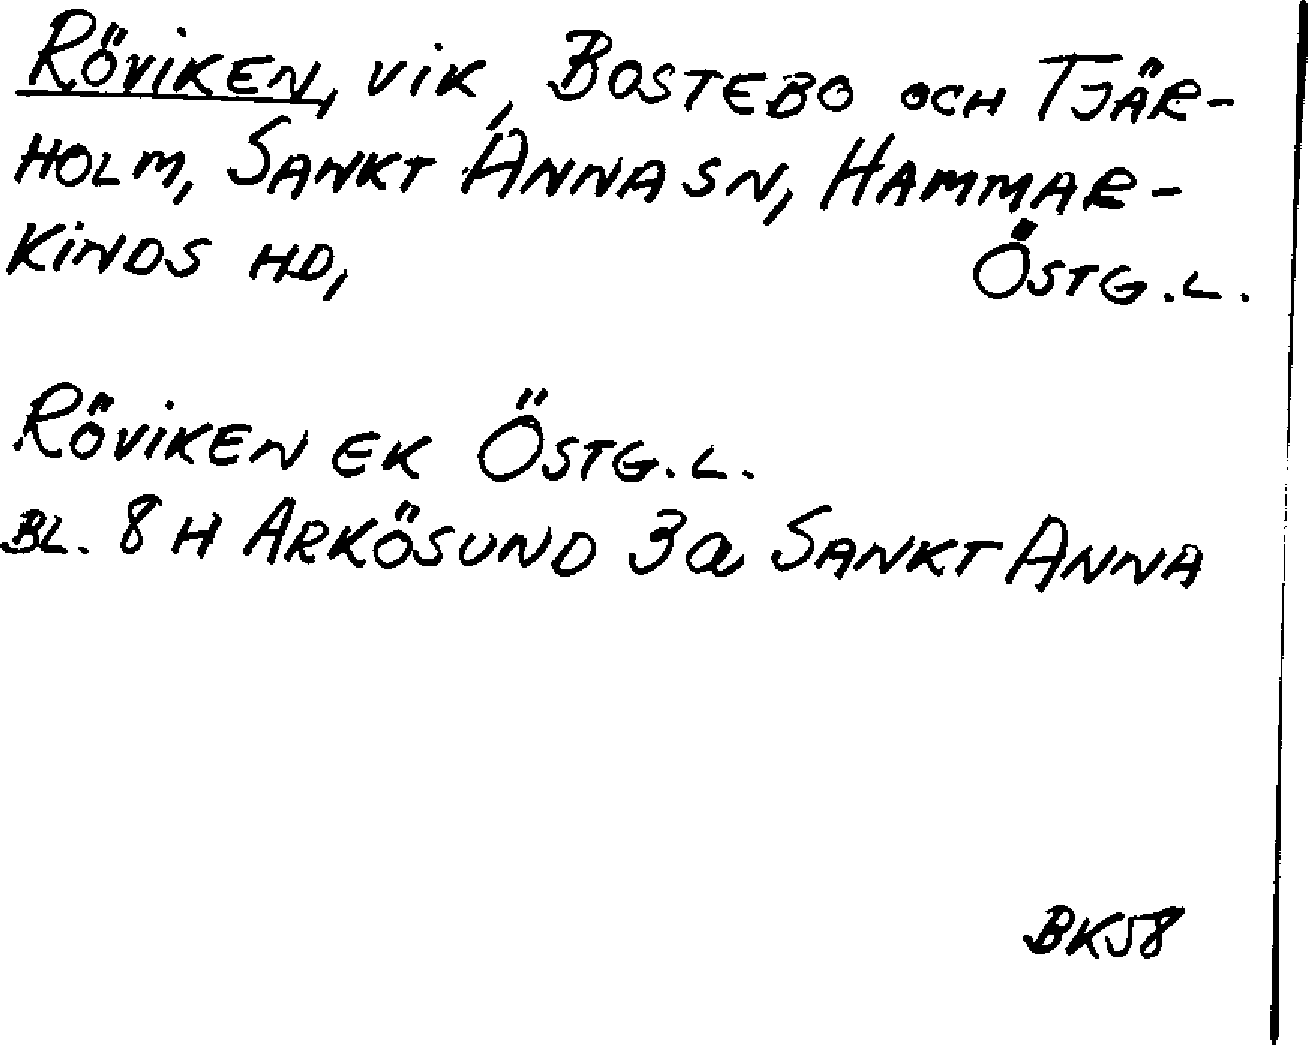 Röviken, vik, Bostebo och Tjär-
holm, Sankt Anna sn, Hammar-
kinds hd, Östg.l.
Röviken ek Östg.l.
Bl. 8 H Arkösund 3a Sankt Anna
BK58